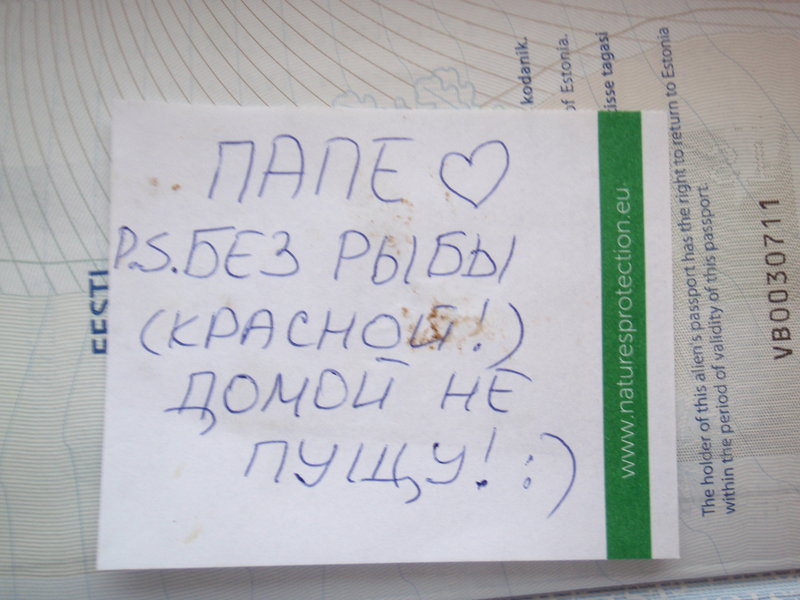 ПАПЕ ♡
P.S. БЕЗ РЫБЫ
(КРАСНОЙ!)
ДОМОЙ НЕ
ПУЩУ! :)
www.naturesprotection.eu
EESTI
kodanik.
of Estonia.
tisse tagasi
The holder of this alien's passport has the right to return to Estonia
within the period of validity of this passport.
VB0030711